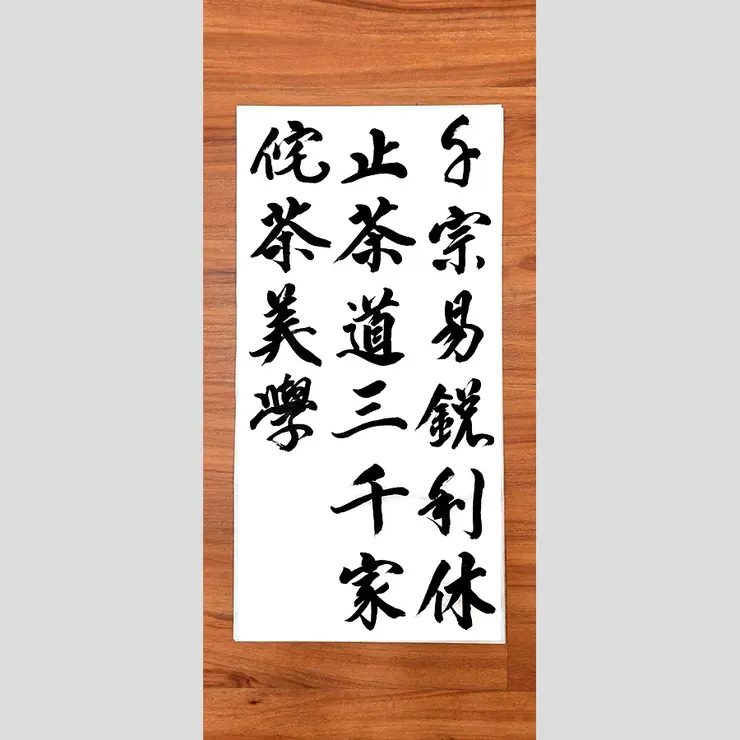 千宗易銳利休
止茶道三千家
侘茶美學